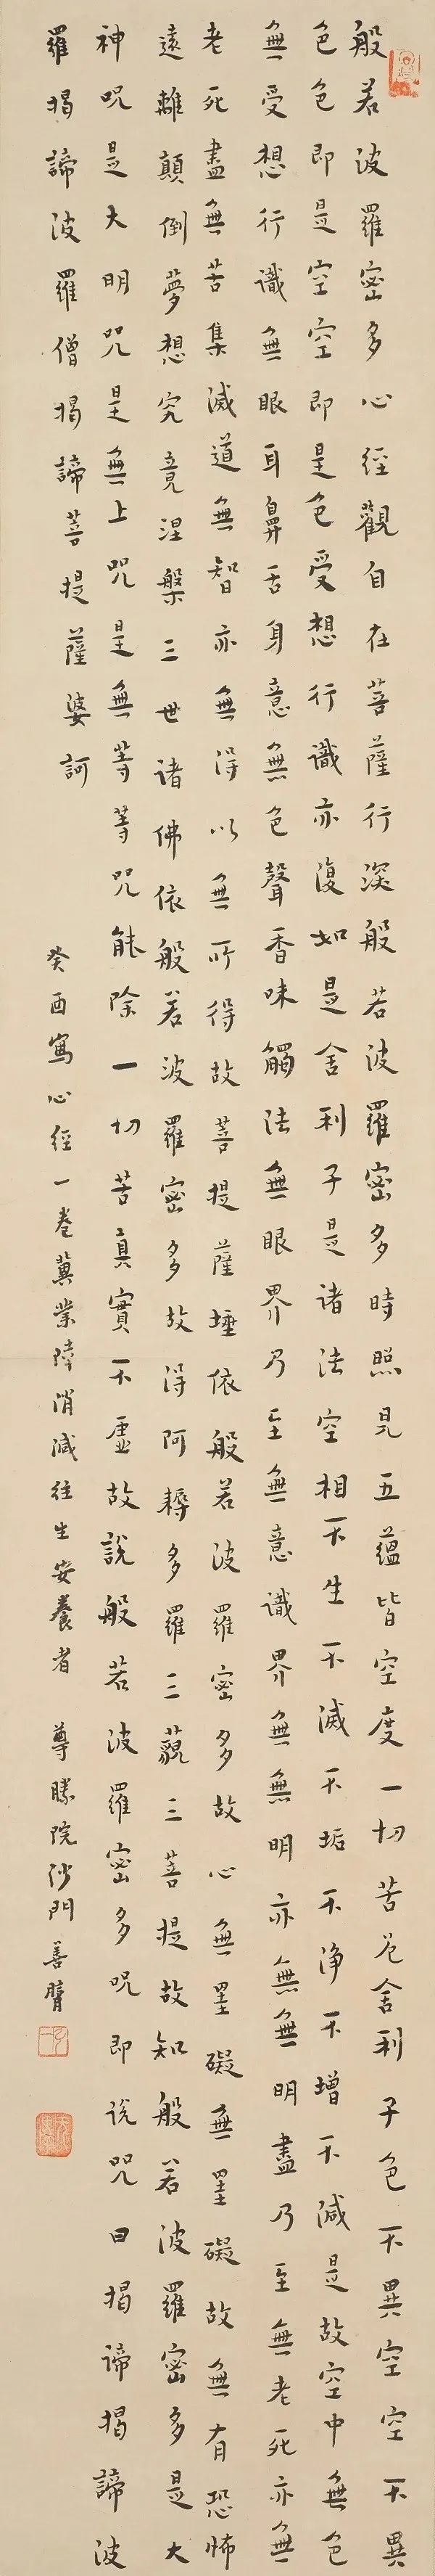 般若波羅密多心經觀自在菩薩行深般若波羅密多時照見五蘊皆空度一切苦厄舍利子色不異空空不異
色色即是空空即是色受想行識亦復如是舍利子是諸法空相不生不滅不垢不淨不增不減是故空中無色
無受想行識無眼耳鼻舌身意無色聲香味觸法無眼界乃至無意識界無無明亦無無明盡乃至無老死亦無
老死盡無苦集滅道無智亦無得以無所得故菩提薩埵依般若波羅密多故心無罣礙無罣礙故無有恐怖
遠離顛倒夢想究竟涅槃三世諸佛依般若波羅密多故得阿耨多羅三藐三菩提故知般若波羅密多是大
神咒是大明咒是無上咒是無等等咒能除一切苦真實不虛故說般若波羅密多咒即說咒曰揭諦揭諦波
羅揭諦波羅僧揭諦菩提薩婆訶
癸酉寫心經一卷冀業障消滅往生安養者 尊勝院沙門善臂